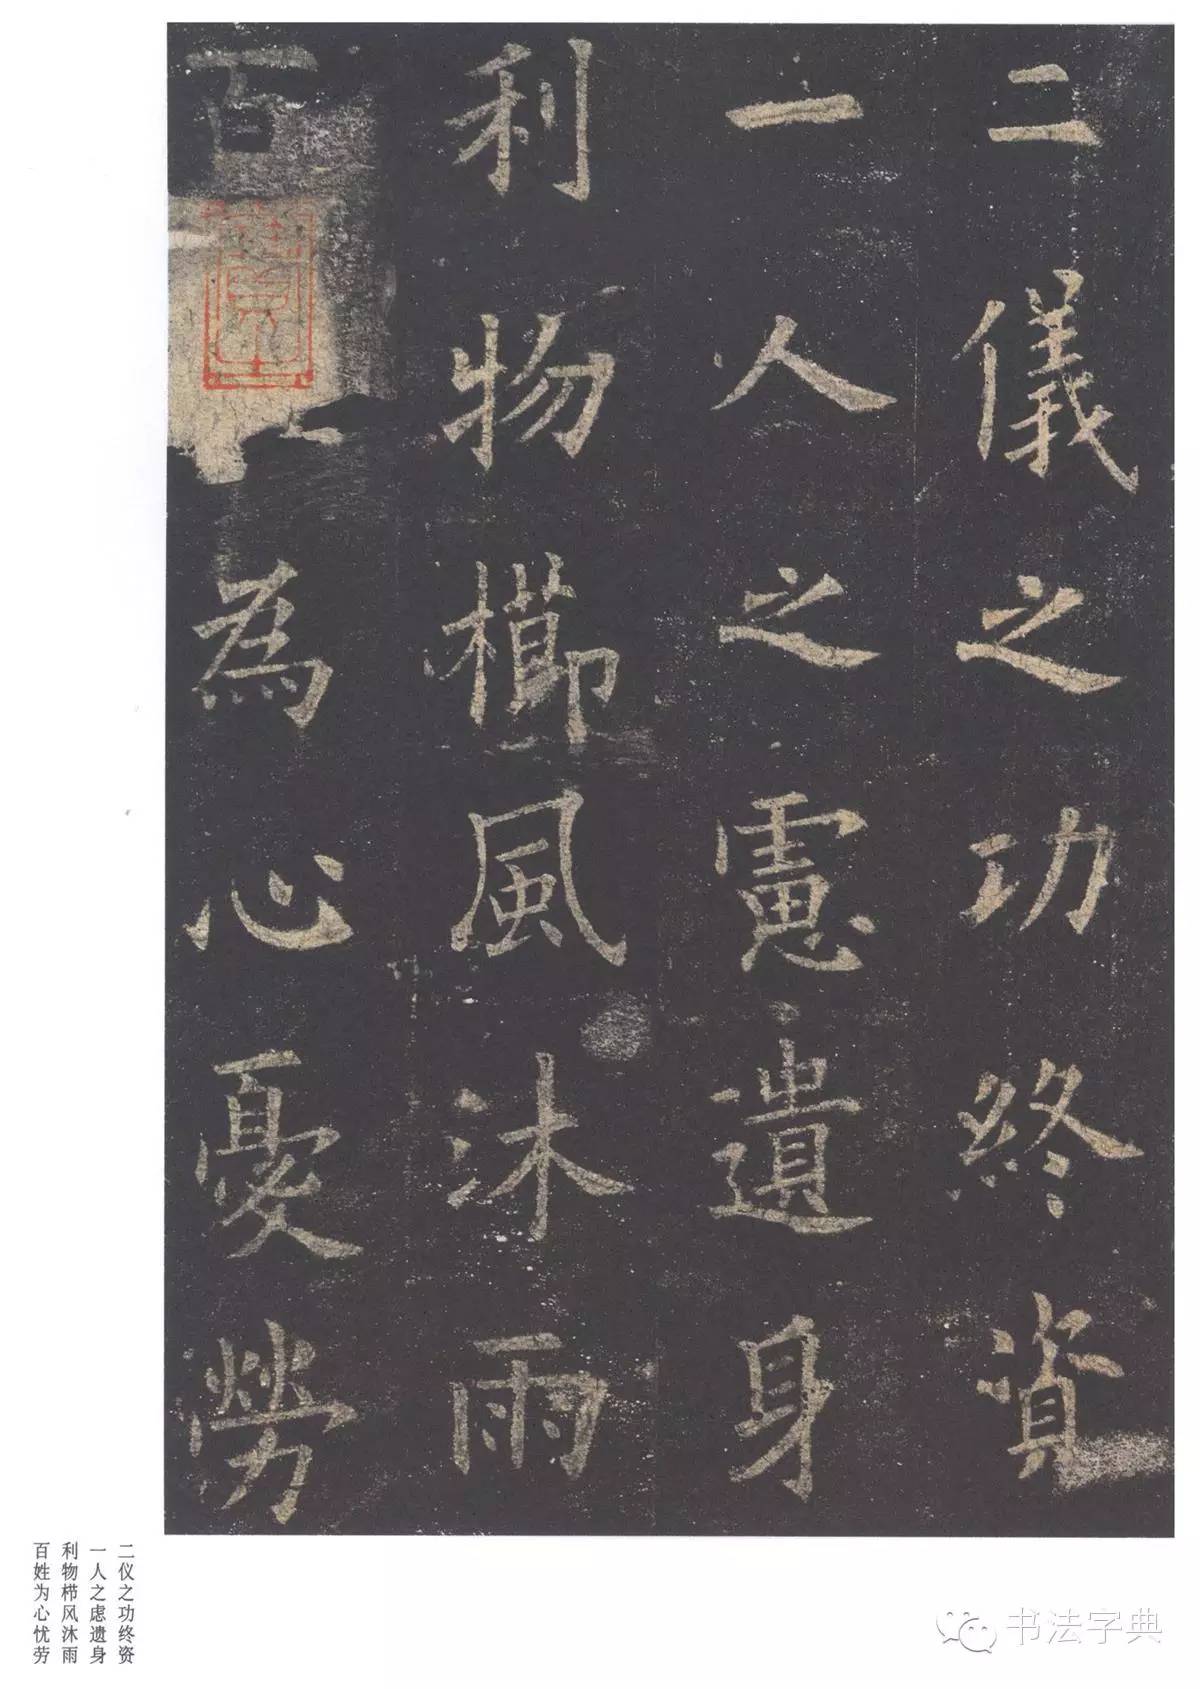 二儀之功終資
一人之慮遺身
利物櫛風沐雨
百
為心憂勞
二仪之功终资
一人之虑遗身
利物栉风沐雨
百姓为心忧劳
书法字典